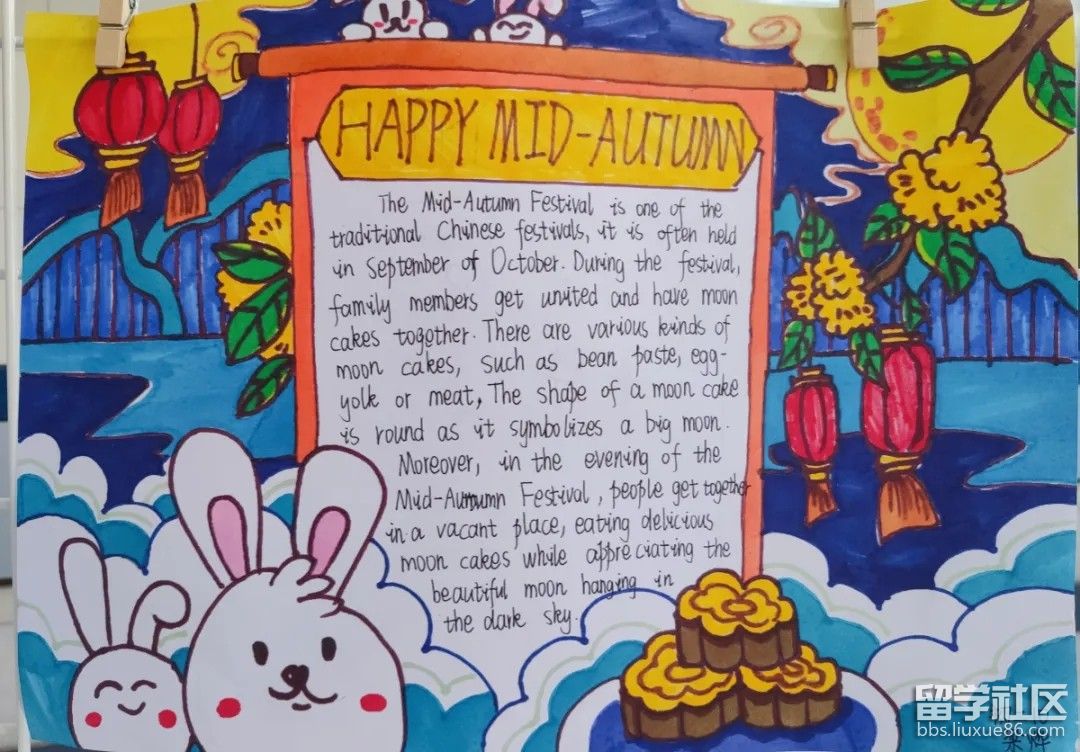 HAPPY MID-AUTUMN
The Mid-Autumn Festival is one of the
traditional Chinese festivals, it is often held
in September of October. During the festival,
family members get united and have moon
cakes togother. There are various kinds of
moon cakes, such as bean paste, egg-
yolk or meat, The shape of a moon cake
is round as it symbolizes a big moon.
Moreover, in the evening of the
Mid-Autumn Festival, people get together
in a vacant place, eating delicious
moon cakes while appreciating the
beautiful moon hanging in
the dark sky.
留学社区
bbs.liuxue86.com